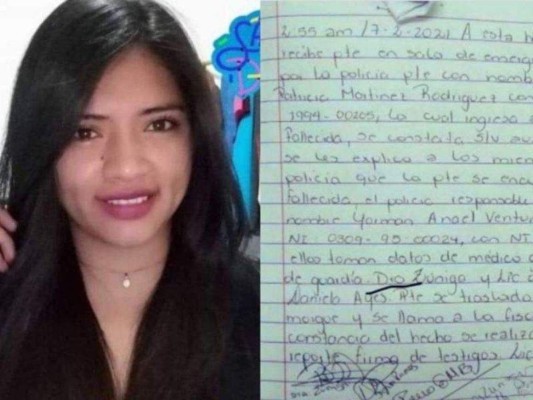 2:55 am / 7-2-2021 A esta h
recibe pte en sala de emerg
por la policia pte con nomb
Patricia Martinez Rodriguez con
1994-00205, la cual ingresa
fallecida, se constata s/v au
se les explica a los miem
policia que la pte se encu
fallecida, el policia responsable
nombre Yoirman Anael Ventur
NI 0309-95-00024, con NI
ellos toman datos de médico
de guardia Dra Zuniga y Lic
Daniela Pte se traslada
morgue y se llama a la fisc
constancia del hecho se realiz
reporte firma de testigos Lic